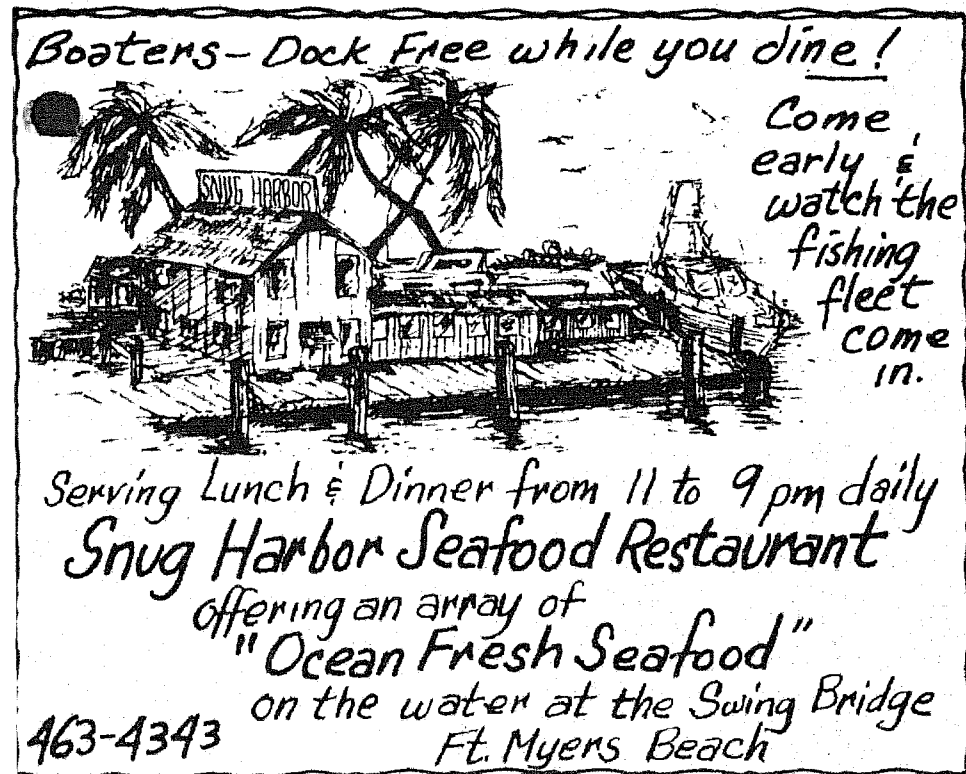 Boaters – Dock Free while you dine!
Come
early &
watch the
fishing
fleet
come
in.
SNUG HARBOR
Serving Lunch & Dinner from 11 to 9 pm daily
Snug Harbor Seafood Restaurant
offering an array of
"Ocean Fresh Seafood"
on the water at the Swing Bridge
463-4343
Ft. Myers Beach